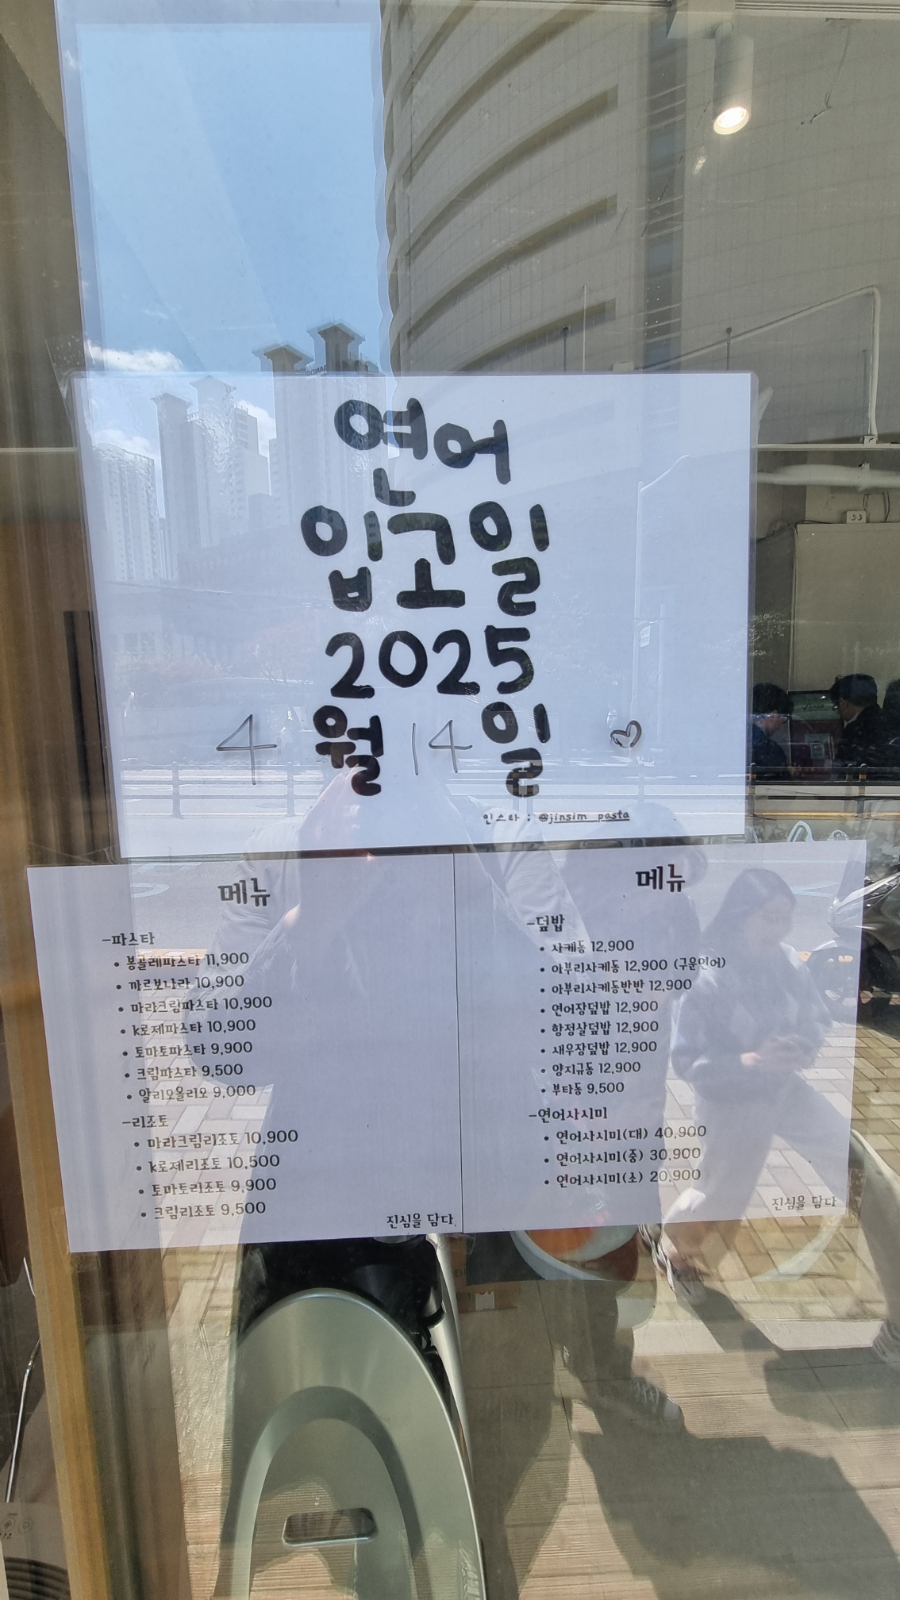 연어
입고일
2025
4월 14일
인스타 : @jinsim_pasta
메뉴
-파스타
• 봉골레파스타 11,900
• 까르보나라 10,900
• 마라크림파스타 10,900
• k로제파스타 10,900
• 토마토파스타 9,900
• 크림파스타 9,500
• 알리오올리오 9,000
-리조토
• 마라크림리조토 10,900
• k로제리조토 10,500
• 토마토리조토 9,900
• 크림리조토 9,500
진심을 담다
메뉴
-덮밥
• 사케동 12,900
• 아부리사케동 12,900 (구운연어)
• 아부리사케동반반 12,900
• 연어장덮밥 12,900
• 항정살덮밥 12,900
• 새우장덮밥 12,900
• 양지규동 12,900
• 부타동 9,500
-연어사시미
• 연어사시미(대) 40,900
• 연어사시미(중) 30,900
• 연어사시미(소) 20,900
진심을 담다